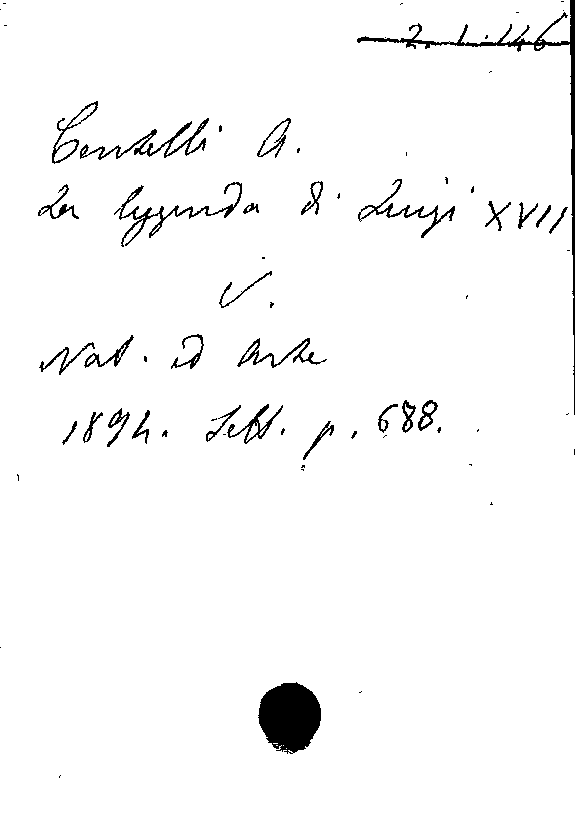 2.1.146
Centelli A.
La leggenda di Luigi XVII
V.
Nat. ed Arte
1894. Sett. p. 688.